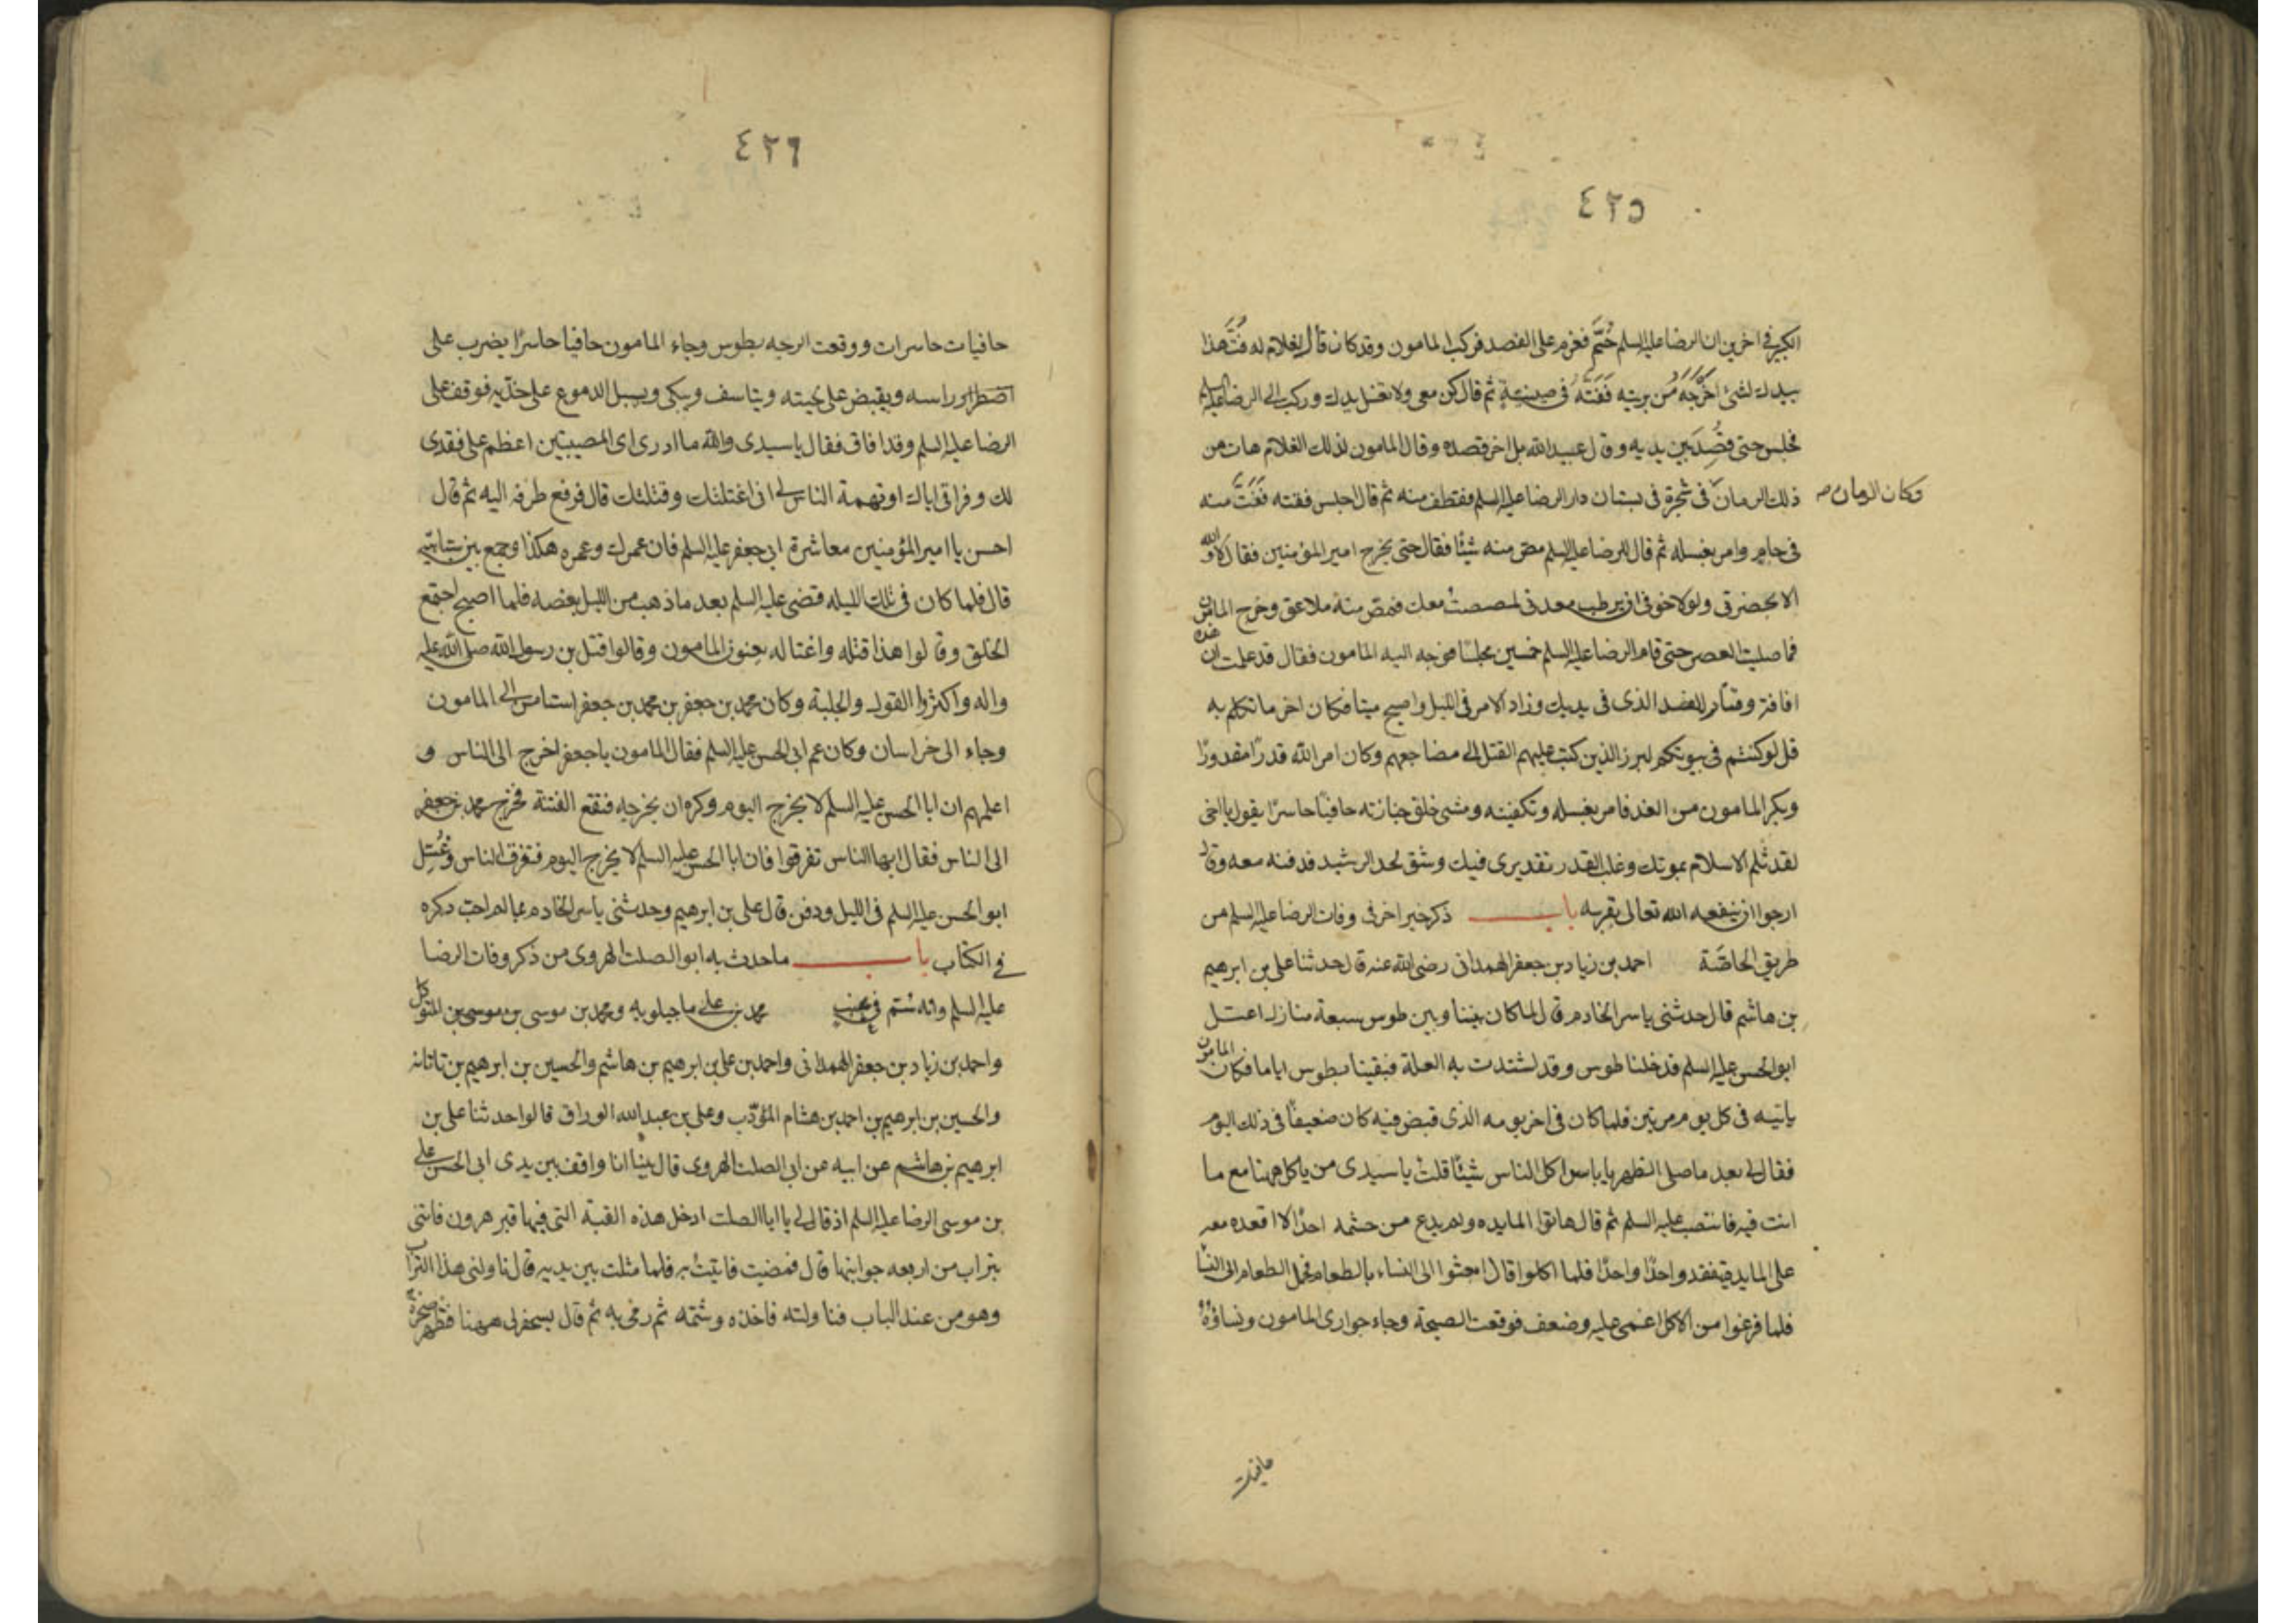 ٤٢٥
الكبير في اخرين ان الرضا عليه السلم حُمَّ فعزم على الفصد فركب المامون وقد كان قال لغلام له فُتَّ هذا
بيدك لشئ اخرجه من برنيته فَفَتَّه في صينية ثم قال كن معى ولا تغسل يدك وركب الى الرضا عليه السلم
فجلس حتى فُصِدَ بين يديه وقال عبيد الله بل اخر فصده وقال المامون لذلك الغلام هات من
ذلك الرمان في شجرة في بستان دار الرضا عليه السلم فقطف منه ثم قال اجلس ففته فَفَتَّ منه
وكان الرمان
في جام وامر بغسله ثم قال للرضا عليه السلم مص منه شيئًا فقال حتى يخرج امير المؤمنين فقال لا والله
الا بحضرتى ولولا خوفى ان يرطب معدتى لمصصتُ معك فمص منه ملاعق وخرج المامون
فما صليت العصر حتى قام الرضا عليه السلم خمسين مجلسًا فوجه اليه المامون فقال قد علمت ان هذه
افاقة وفتار للفصد الذى في يديك وزاد الامر في الليل واصبح ميتا فكان اخر ما تكلم به
قل لو كنتم في بيوتكم لبرز الذين كتب عليهم القتل الى مضاجعهم وكان امر الله قدرًا مقدورًا
وبكر المامون من الغد فامر بغسله وتكفينه ومشى خلف جنازته حافيًا حاسرًا يقول يا اخى
لقد ثلم الاسلام بموتك وغلب القدر تقديرى فيك وشق لحد الرشيد فدفنه معه وقال
ارجوا ان ينفعه الله تعالى بقربه باب ذكر خبر اخر في وفات الرضا عليه السلم من
طريق الخاصّة احمد بن زياد بن جعفر الهمدانى رضى الله عنه قال حدثنا على بن ابرهيم
بن هاشم قال حدثنى ياسر الخادم قال لما كان بيننا وبين طوس سبعة منازل اعتل
ابو الحسن عليه السلم فدخلنا طوس وقد اشتدت به العلة فبقينا بطوس اياما فكان المامون
ياتيه في كل يوم مرتين فلما كان في اخر يومه الذى قبض فيه كان ضعيفًا في ذلك اليوم
فقال لى بعد ما صلى الظهر يا ياسر اكل الناس شيئًا قلت يا سيدى من ياكل ههنا مع ما
انت فيه فانتصب عليه السلم ثم قال هاتوا المايده ولم يدع من حشمه احدًا الا اقعده معه
على المايدة يتفقد واحدًا واحدًا فلما اكلوا قال ابعثوا الى النساء بالطعام فحمل الطعام الى النسا
فلما فرغوا من الاكل اغمى عليه وضعف فوقعت الصيحة وجاء جوارى المامون ونساؤه
حافيات
٤٢٦
حافيات حاسرات ووقعت الوجبه بطوس وجاء المامون حافيا حاسرًا يضرب على
راسه ويقبض على لحيته ويتاسف ويبكى ويسيل الدموع على خدّيه فوقف على
الرضا عليه السلم وقد افاق فقال يا سيدى والله ما ادرى اى المصيبتين اعظم على فقدى
لك وفراقى اياك او تهمة الناس لى انى اغتلتك وقتلتك قال فرفع طرفه اليه ثم قال
احسن يا امير المؤمنين معاشرة ابى جعفر عليه السلم فان عمرك وعمره هكذا وجمع بين سبابتيه
قال فلما كان في تلك الليله قضى عليه السلم بعد ما ذهب من الليل بعضه فلما اصبح اجتمع
الخلق وقالوا هذا قتله واغتاله يعنون المامون وقالوا قتل بن رسول الله صلى الله عليه
واله واكثروا القول والجلبة وكان محمد بن جعفر بن محمد بن جعفر استامن الى المامون
وجاء الى خراسان وكان عم ابى الحسن عليه السلم فقال المامون يا جعفر اخرج الى الناس و
اعلمهم ان ابا الحسن عليه السلم لا يخرج اليوم وكره ان يخرجه فتقع الفتنة فخرج محمد بن جعفر
الى الناس فقال ايها الناس تفرقوا فان ابا الحسن عليه السلم لا يخرج اليوم فتفرق الناس وغُسّل
ابو الحسن عليه السلم في الليل ودفن قال على بن ابرهيم وحدثنى ياسر الخادم بما لم احبّ ذكره
في الكتاب باب ما حدث به ابو الصلت الهروى من ذكر وفات الرضا
عليه السلم وانه سُم في عنب محمد بن على ماجيلويه ومحمد بن موسى بن موسى بن المتوكل
واحمد بن زياد بن جعفر الهمدانى واحمد بن على بن ابرهيم بن هاشم والحسين بن ابرهيم بن تاتانه
والحسين بن ابرهيم بن احمد بن هشام المؤدّب وعلى بن عبد الله الوراق قالوا حدثنا على بن
ابرهيم بن هاشم عن ابيه عن ابى الصلت الهروى قال بينا انا واقف بين يدى ابى الحسن على
بن موسى الرضا عليه السلم اذ قال لى يا ابا الصلت ادخل هذه القبة التى فيها قبر هرون فاتنى
بتراب من اربعه جوانبها قال فمضيت فاتيتُ به فلما مثلت بين يديه قال ناولنى هذا التراب
وهو من عند الباب فناولته فاخذه وشمه ثم رمى به ثم قال يسحفر لى ههنا فتظهر صخرة